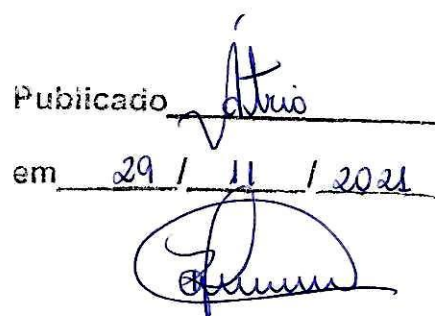 Publicado Átrio
em 29 / 11 / 2021